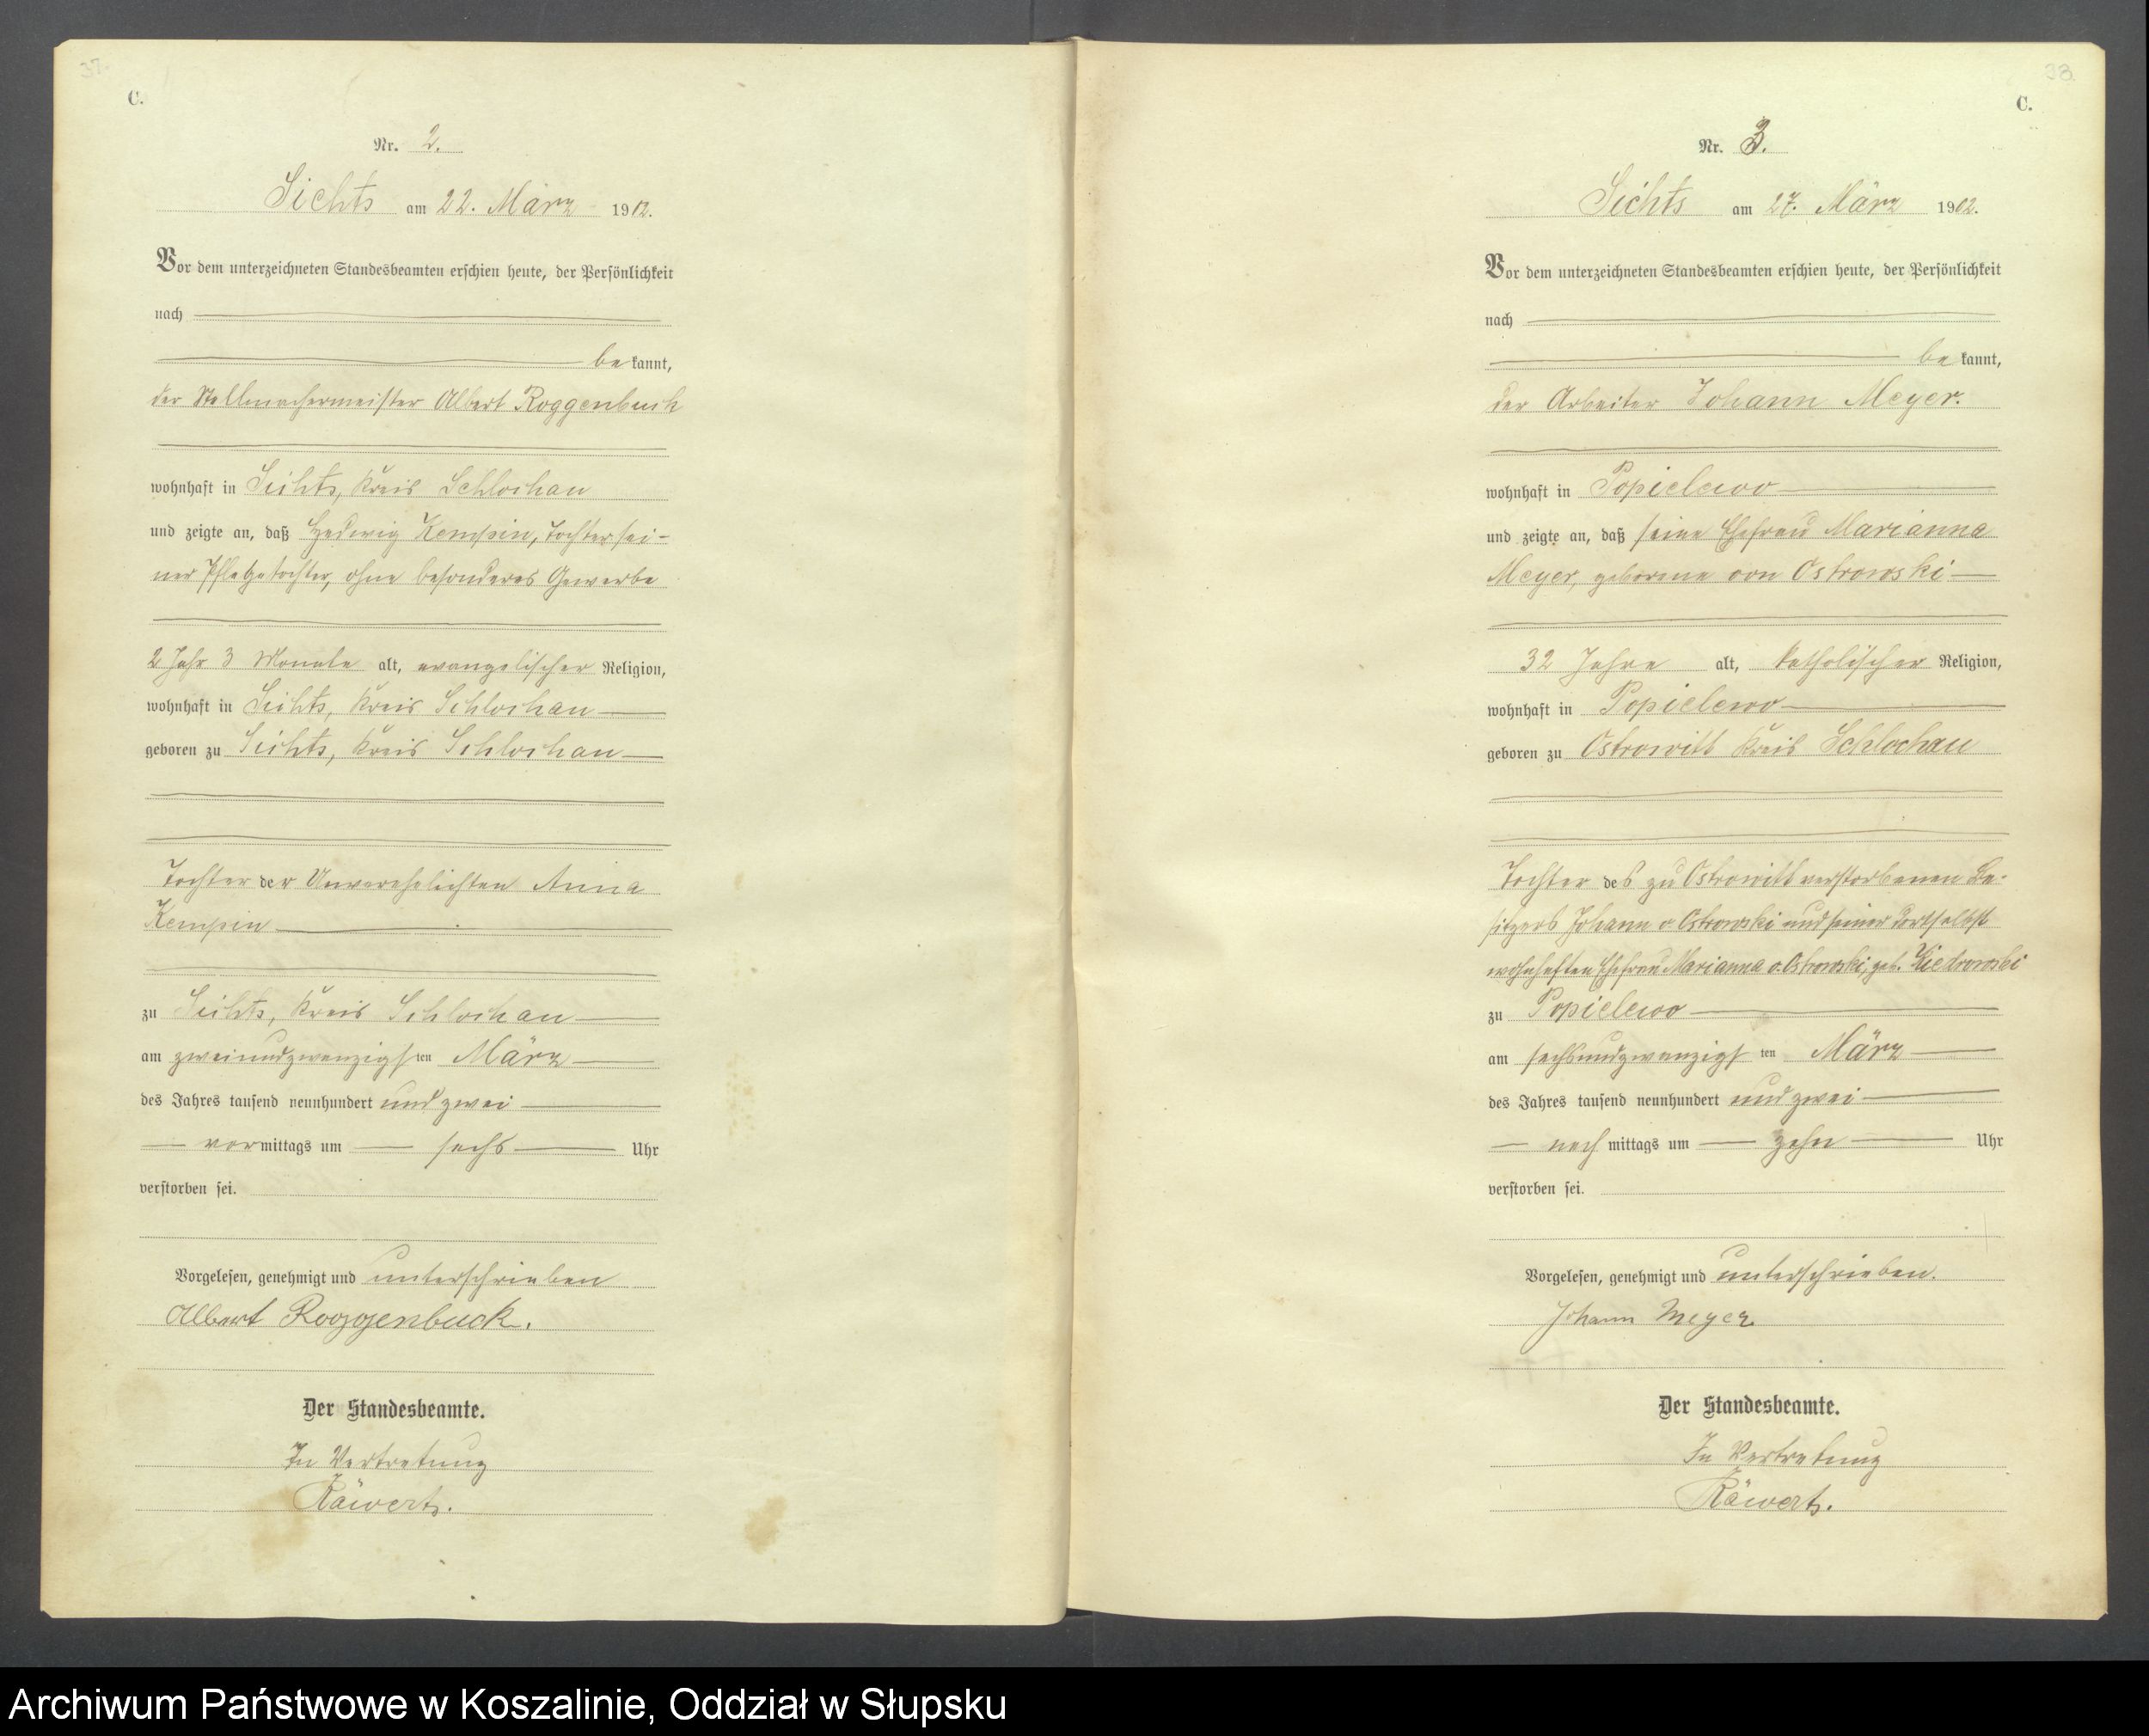 37.
C.
Nr. 2.
Sichts am 22. März 1902.
Vor dem unterzeichneten Standesbeamten erschien heute, der Persönlichkeit
nach
be kannt,
der Stellmachermeister Albert Roggenbuck
wohnhaft in Sichts, Kreis Schlochau
und zeigte an, daß Hedwig Kempin, Tochter sei-
ner Pflegetochter, ohne besonderes Gewerbe
2 Jahr 3 Monate alt, evangelischer Religion,
wohnhaft in Sichts, Kreis Schlochau
geboren zu Sichts, Kreis Schlochau
Tochter der Unverehelichten Anna
Kempin
zu Sichts, Kreis Schlochau
am zweiundzwanzigsten März
des Jahres tausend neunhundert und zwei
vormittags um sechs Uhr
verstorben sei.
Vorgelesen, genehmigt und unterschrieben
Albert Roggenbuck.
Der Standesbeamte.
In Vertretung
Käwert.
38.
C.
Nr. 3.
Sichts am 27. März 1902.
Vor dem unterzeichneten Standesbeamten erschien heute, der Persönlichkeit
nach
be kannt,
der Arbeiter Johann Meyer.
wohnhaft in Popielewo
und zeigte an, daß seine Ehefrau Marianna
Meyer, geborene von Ostrowski
32 Jahre alt, katholischer Religion,
wohnhaft in Popielewo
geboren zu Ostrowitt Kreis Schlochau
Tochter des zu Ostrowitt verstorbenen Be-
sitzers Johann v. Ostrowski und seiner dortselbst
wohnhaften Ehefrau Marianna v. Ostrowski, geb. Kiedrowski
zu Popielewo
am sechsundzwanzigsten März
des Jahres tausend neunhundert und zwei
nach mittags um zehn Uhr
verstorben sei.
Vorgelesen, genehmigt und unterschrieben.
Johann Meyer
Der Standesbeamte.
In Vertretung
Käwert.
Archiwum Państwowe w Koszalinie, Oddział w Słupsku